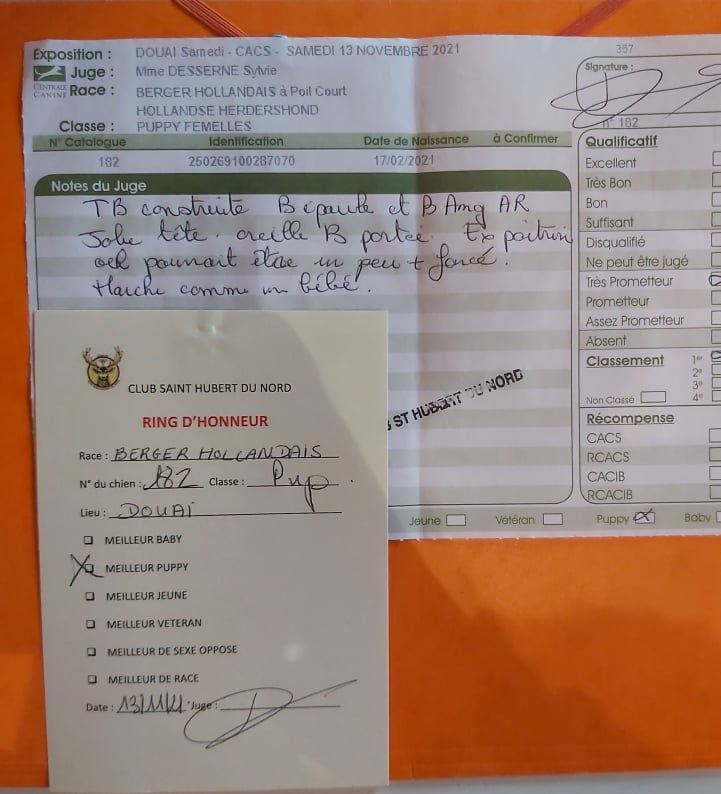 Exposition : DOUAI Samedi - CACS - SAMEDI 13 NOVEMBRE 2021
357
Juge : Mme DESSERNE Sylvie
Signature :
CENTRALE CANINE
Race : BERGER HOLLANDAIS à Poil Court
HOLLANDSE HERDERSHOND
Classe : PUPPY FEMELLES
n° 182
N° Catalogue Identification Date de Naissance à Confirmer
182 250269100287070 17/02/2021
Notes du Juge
TB construite B épaule et B Ang AR
Jolie tête. oreille B portée. Ex poitrine
oeil pourrait être un peu + foncé.
Marche comme un bébé.
Qualificatif
Excellent
Très Bon
Bon
Suffisant
Disqualifié
Ne peut être jugé
Très Prometteur
Prometteur
Assez Prometteur
Absent
Classement 1er
2e
3e
Non Classé 4e
Récompense
CACS
RCACS
CACIB
RCACIB
ST HUBERT DU NORD
Jeune Vétéran Puppy X Baby
CLUB SAINT HUBERT DU NORD
RING D'HONNEUR
Race : BERGER HOLLANDAIS
N° du chien : 182 Classe : Pup
Lieu : DOUAI
MEILLEUR BABY
X MEILLEUR PUPPY
MEILLEUR JEUNE
MEILLEUR VETERAN
MEILLEUR DE SEXE OPPOSE
MEILLEUR DE RACE
Date : 13/11/21 Juge :